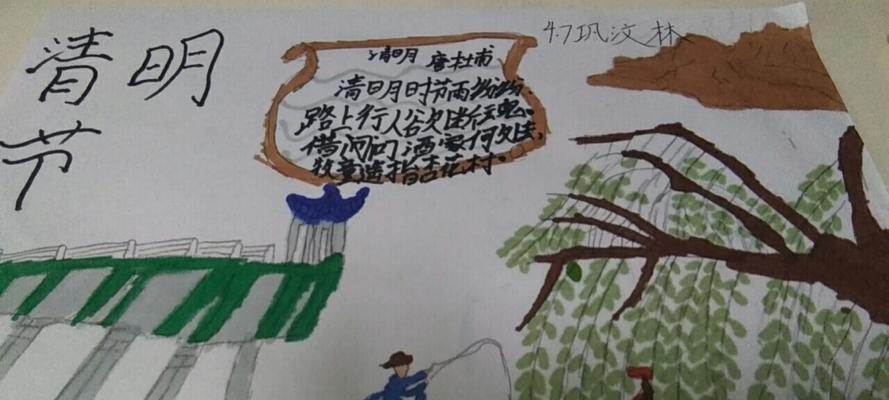 清明
节
4.7 巩汶林
清明 唐 杜甫
清明时节雨纷纷,
路上行人欲断魂。
借问酒家何处
牧童遥指杏花村。